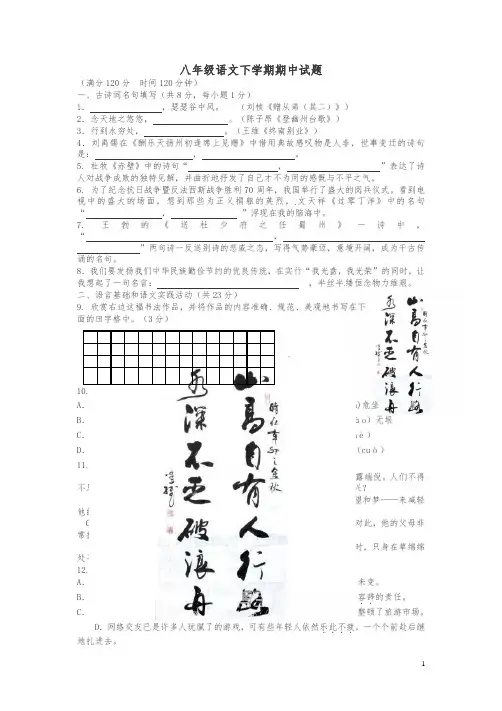 八年级语文下学期期中试题
（满分120分 时间120分钟）
一、古诗词名句填写（共8分，每小题1分）
1、 ，瑟瑟谷中风。 （刘桢《赠从弟（其二）》）
2．念天地之悠悠， 。（陈子昂《登幽州台歌》）
3．行到水穷处， 。（王维《终南别业》）
4．刘禹锡在《酬乐天扬州初逢席上见赠》中借用典故感叹物是人非，世事变迁的诗句
是： ， 。
5．杜牧《赤壁》中的诗句“ ， ”表达了诗
人对战争成败的独特见解，并曲折地抒发了自己才不为用的感慨与不平之气。
6．为了纪念抗日战争暨反法西斯战争胜利70周年，我国举行了盛大的阅兵仪式。看到电
视中的盛大的场面，想到那些为正义捐躯的英烈，文天祥《过零丁洋》中的名句
“ ， ”浮现在我的脑海中。
7．王勃的《送杜少府之任蜀州》一诗中，
“ ，
”两句诗一反送别诗的悲戚之态，写得气势豪迈，意境开阔，成为千古传
诵的名句。
8．我们要发扬我们中华民族勤俭节约的优良传统，在实行“我光盘，我光荣”的同时，让
我想起了一句名言： ，半丝半缕恒念物力维艰。
二、语言基础和语文实践活动（共23分）
9．欣赏右边这幅书法作品，并将作品的内容准确、规范、美观地书写在下
面的田字格中。（3分）
山高自有人行路
水深不乏破浪舟
山高自有人行路
水深不乏破浪舟
10.
A． ）危坐
B． ）无垠
C．
D． （cuò）
11.
露端倪。人们不得
不
望和梦——来减轻
他
C 对此，他的父母非
常
时，只身在草绵绵
处
12.
A． 未变。
B． 容辞的责任。
C． 整顿了旅游市场。
D．网络交友已是许多人玩腻了的游戏，可有些年轻人依然乐此不疲，一个个前赴后继
地扎进去。
1